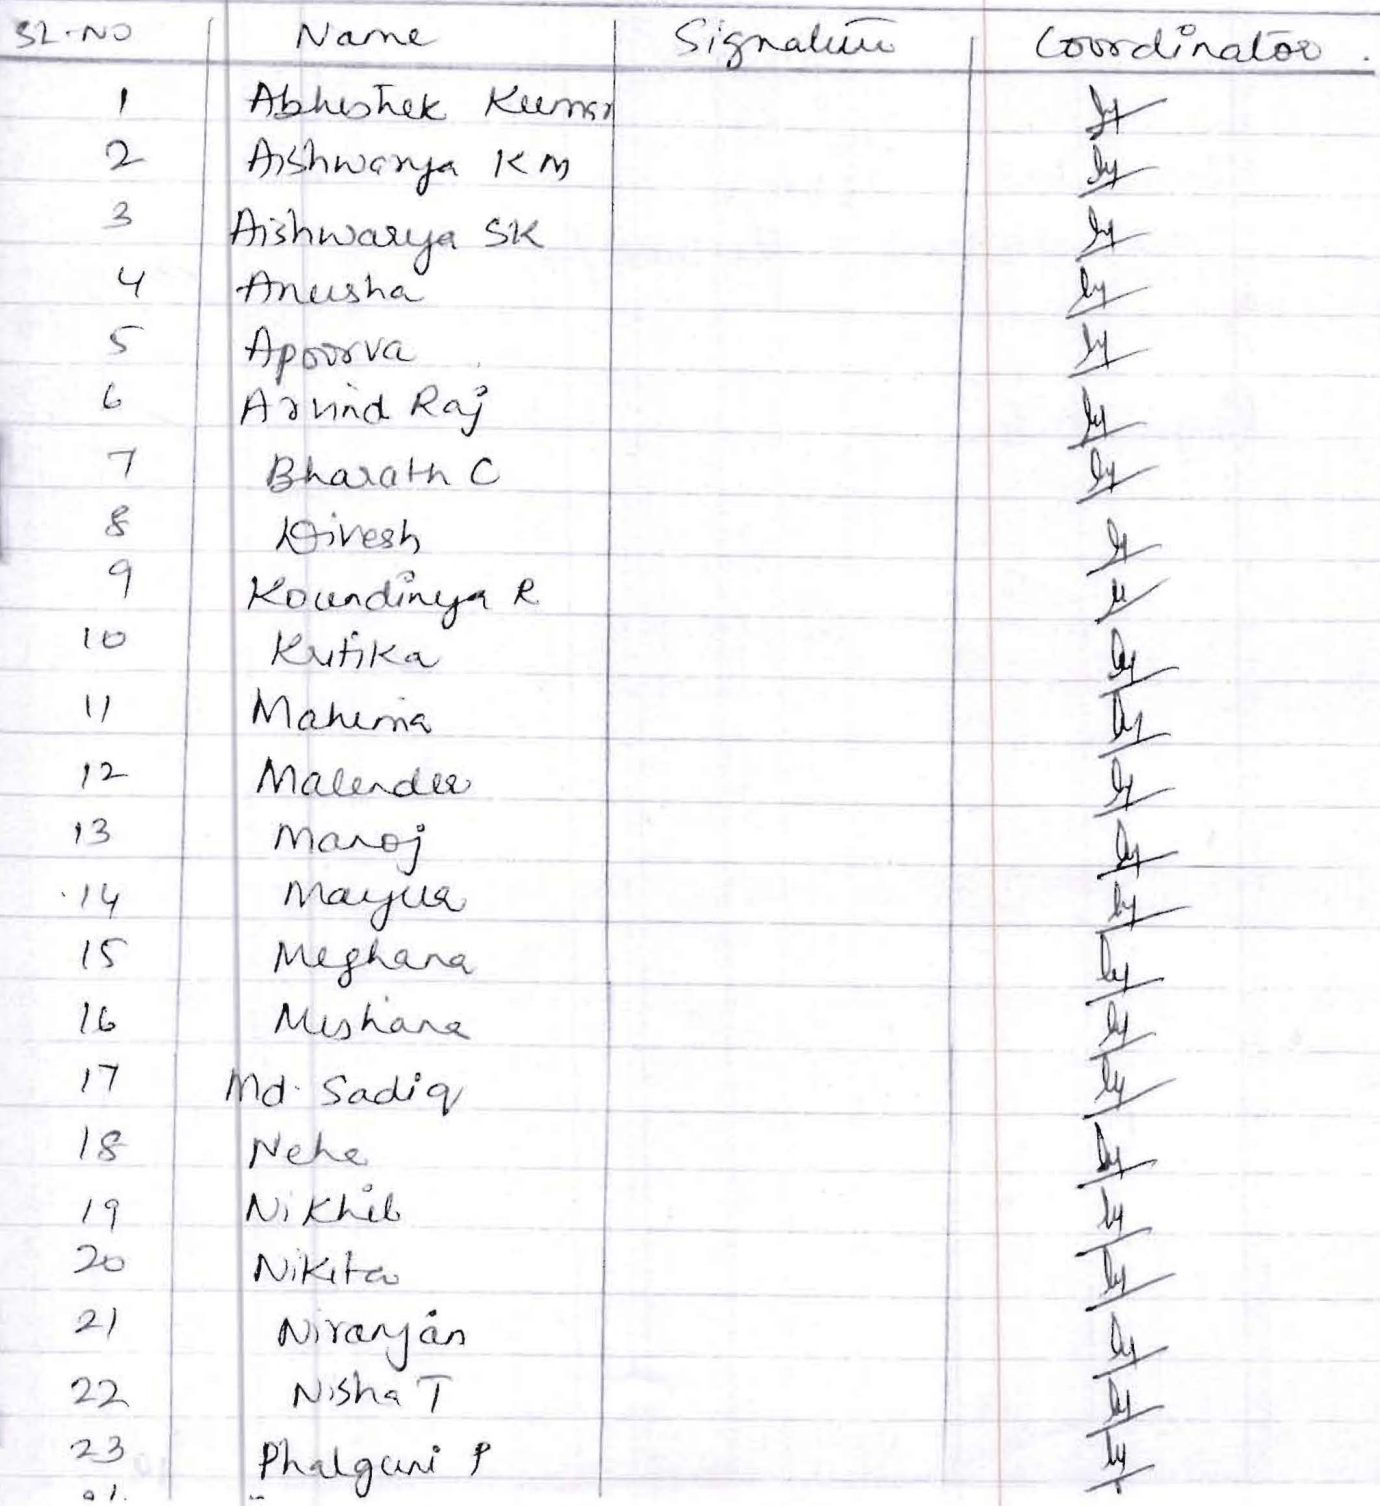 SL.NO Name Signature Coordinator.
1 Abhishek Kumar
2 Aishwarya K M
3 Aishwarya SK
4 Anusha
5 Apoorva
6 Arvind Raj
7 Bharath C
8 Divesh
9 Koundinya R
10 Kritika
11 Mahima
12
13 Manoj
14
15 Meghana
16
17 Md. Sadiq
18 Neha
19 Nikhil
20 Nikita
21 Niranjan
22 Nisha T
23 Phalguni P